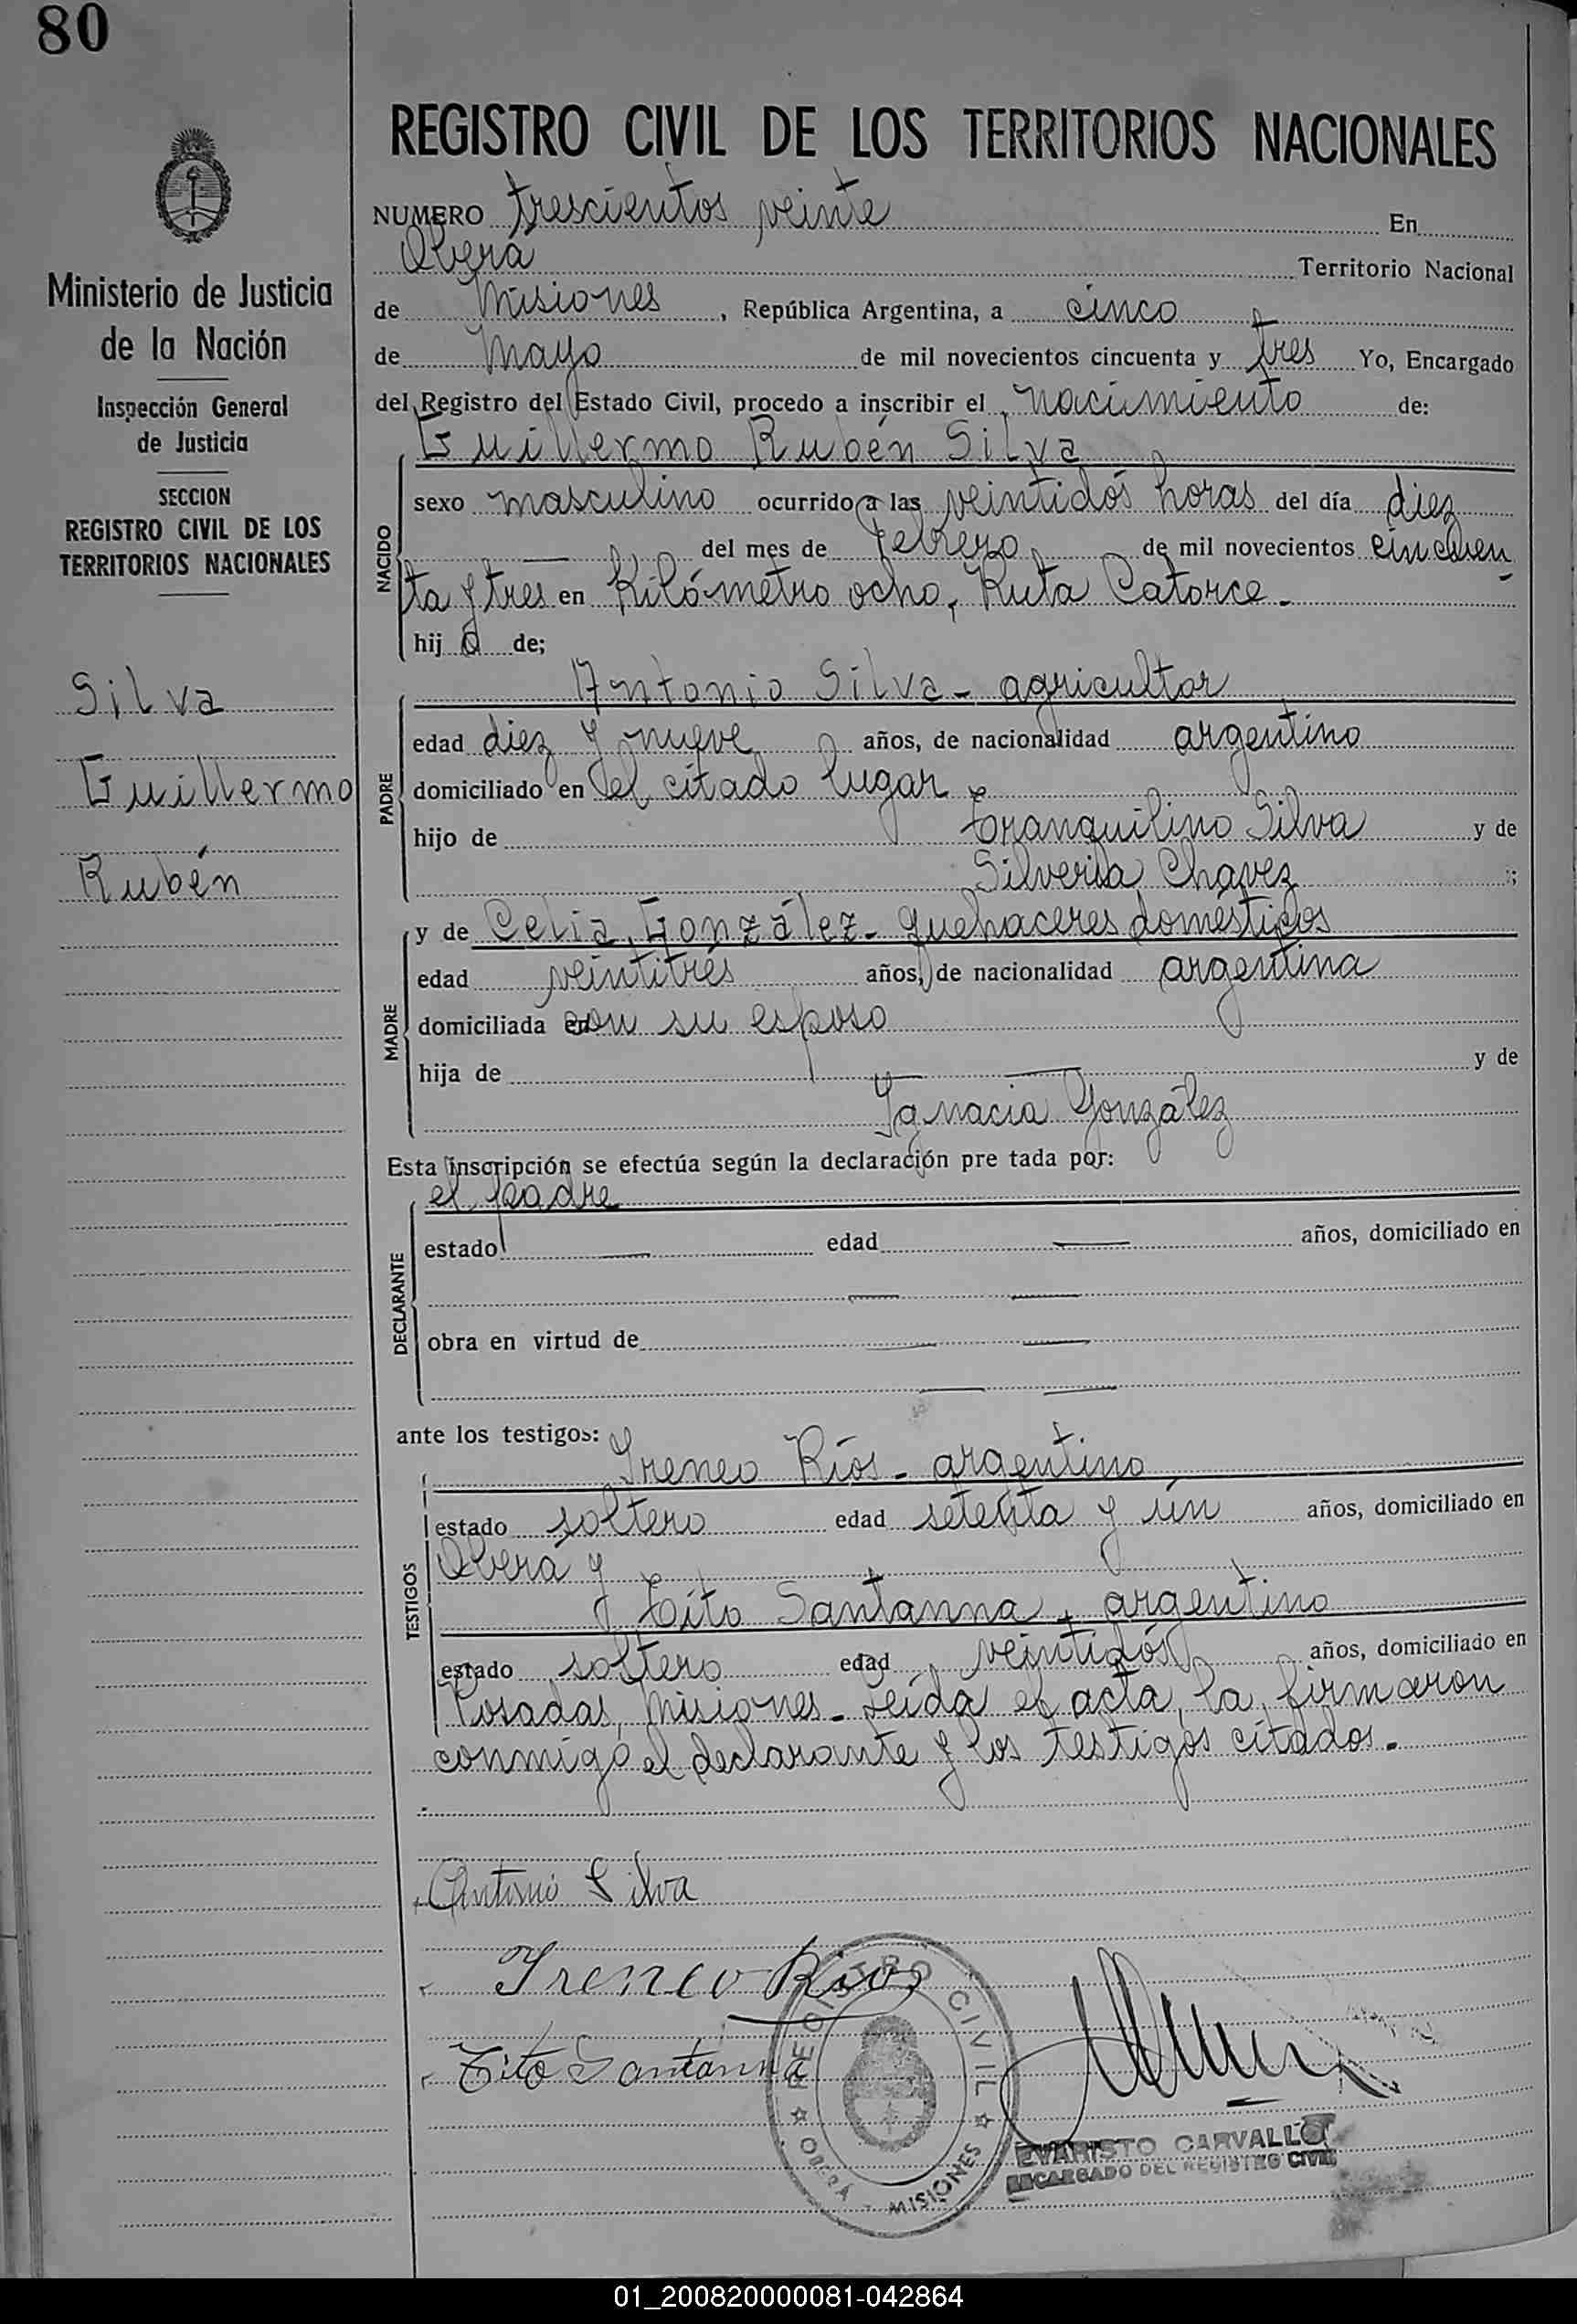 80
REGISTRO CIVIL DE LOS TERRITORIOS NACIONALES
Ministerio de Justicia
de la Nación
Inspección General
de Justicia
SECCION
REGISTRO CIVIL DE LOS
TERRITORIOS NACIONALES
Silva
Guillermo
Rubén
NUMERO trescientos veinte En
Oberá Territorio Nacional
de Misiones, República Argentina, a cinco
de Mayo de mil novecientos cincuenta y tres Yo, Encargado
del Registro del Estado Civil, procedo a inscribir el nacimiento de:
Guillermo Rubén Silva
NACIDO
sexo masculino ocurrido a las veintidós horas del día diez
del mes de Febrero de mil novecientos cincuen
ta y tres en Kilómetro ocho, Ruta Catorce.-
hijo de;
Antonio Silva - agricultor
PADRE
edad diez y nueve años, de nacionalidad argentino
domiciliado en el citado lugar
hijo de Tranquilino Silva y de
Silveria Chavez ;
y de Celia González - quehaceres domésticos
MADRE
edad veintitrés años, de nacionalidad argentina
domiciliada con su esposo
hija de — — y de
Ignacia González
Esta inscripción se efectúa según la declaración pre tada por:
el padre
DECLARANTE
estado — edad — años, domiciliado en
— —
obra en virtud de — —
— —
ante los testigos:
Ireneo Ríos - argentino
TESTIGOS
estado soltero edad setenta y ún años, domiciliado en
Oberá y
Tito Santanna - argentino
estado soltero edad veintidós años, domiciliado en
Posadas, Misiones - Leída el acta, la firmaron
conmigo el declarante y los testigos citados.-
Antonio Silva
Ireneo Rios
Tito Santanna
REGISTRO CIVIL
OBERÁ - MISIONES
EVARISTO CARVALLO
ENCARGADO DEL REGISTRO CIVIL
01_200820000081-042864